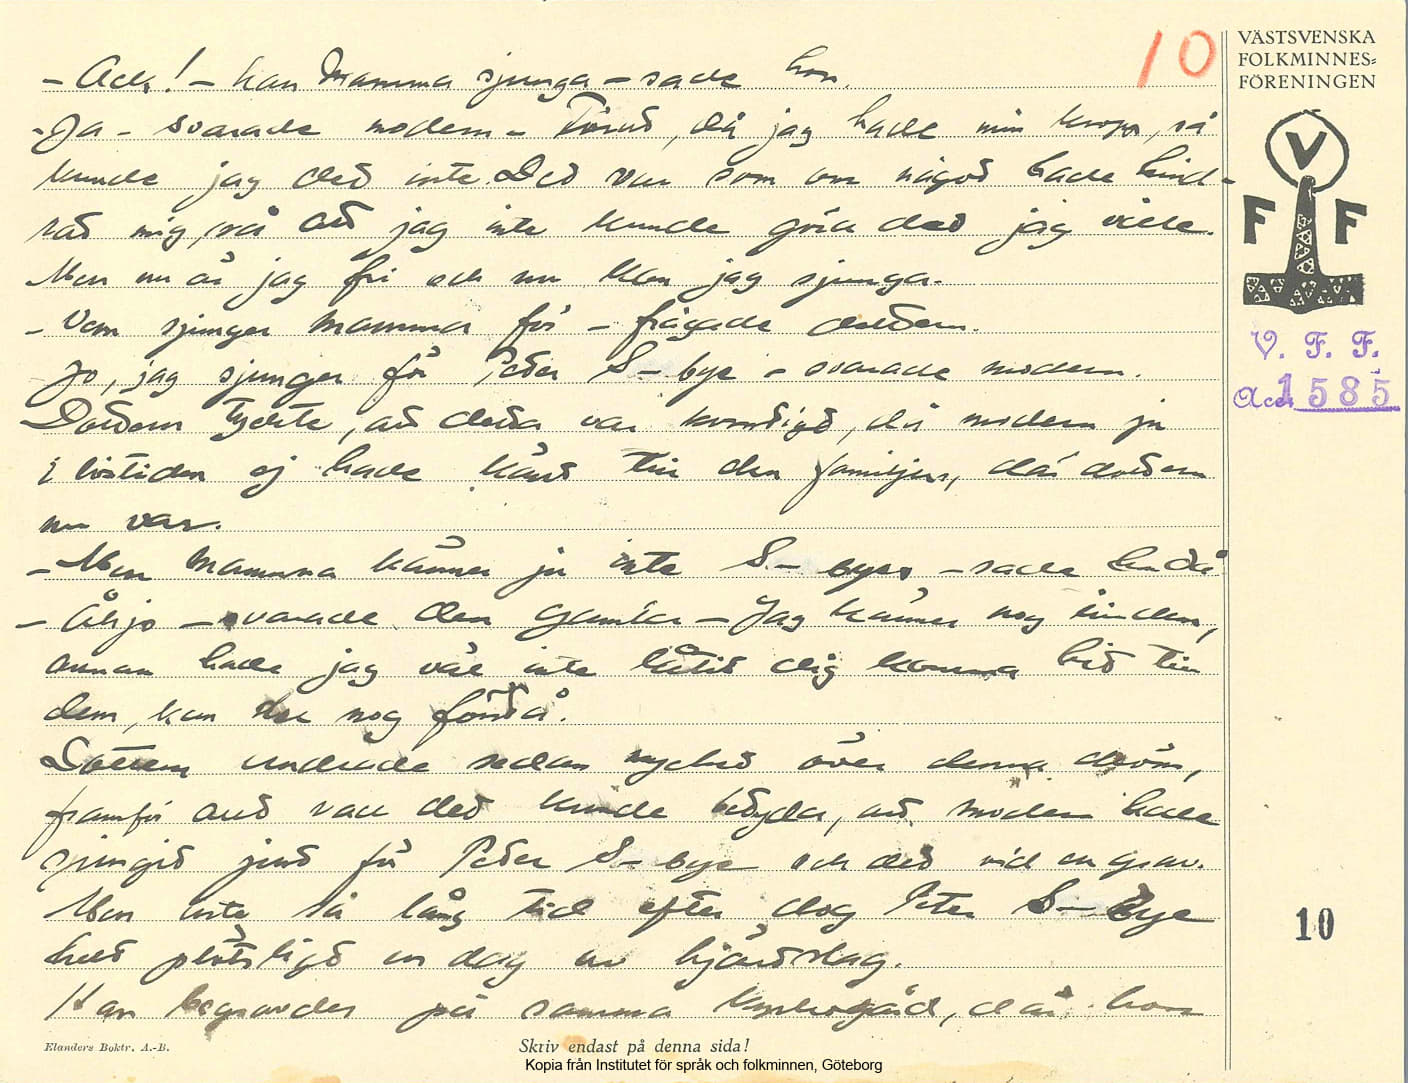 10
VÄSTSVENSKA
FOLKMINNES=
FÖRENINGEN
V
F F
V. F. F.
Acc. 1585
- Ack! - kan Mamma sjunga - sade hon.
- Ja - svarade modern - Förut, då jag hade min kropp, så
kunde jag det inte. Det var som om något hade hind-
rat mig, så att jag inte kunde göra det jag ville.
Men nu är jag fri och nu kan jag sjunga.
- Vem sjunger Mamma för - frågade dottern.
Jo, jag sjunger för Peter S-bye - svarade modern.
Dottern tyckte, att detta var konstigt, då modern ju
i livstiden ej hade känt till den familjen, där dottern
nu var.
- Men Mamma känner ju inte S-byes - sade hon då.
- Åh jo - svarade den gamla - Jag känner nog till dem,
annars hade jag väl inte låtit dig komma hit till
dem, kan du nog förstå.
Dottern undrade sedan mycket över denna dröm,
framför allt vad det kunde betyda, att modern hade
sjungit just för Peter S-bye och det vid en grav.
Men inte så lång tid efter dog Peter S-Bye
helt plötsligt en dag av hjärtslag.
Han begravdes på samma kyrkogård, där hon
10
Elanders Boktr. A.-B.
Skriv endast på denna sida!
Kopia från Institutet för språk och folkminnen, Göteborg